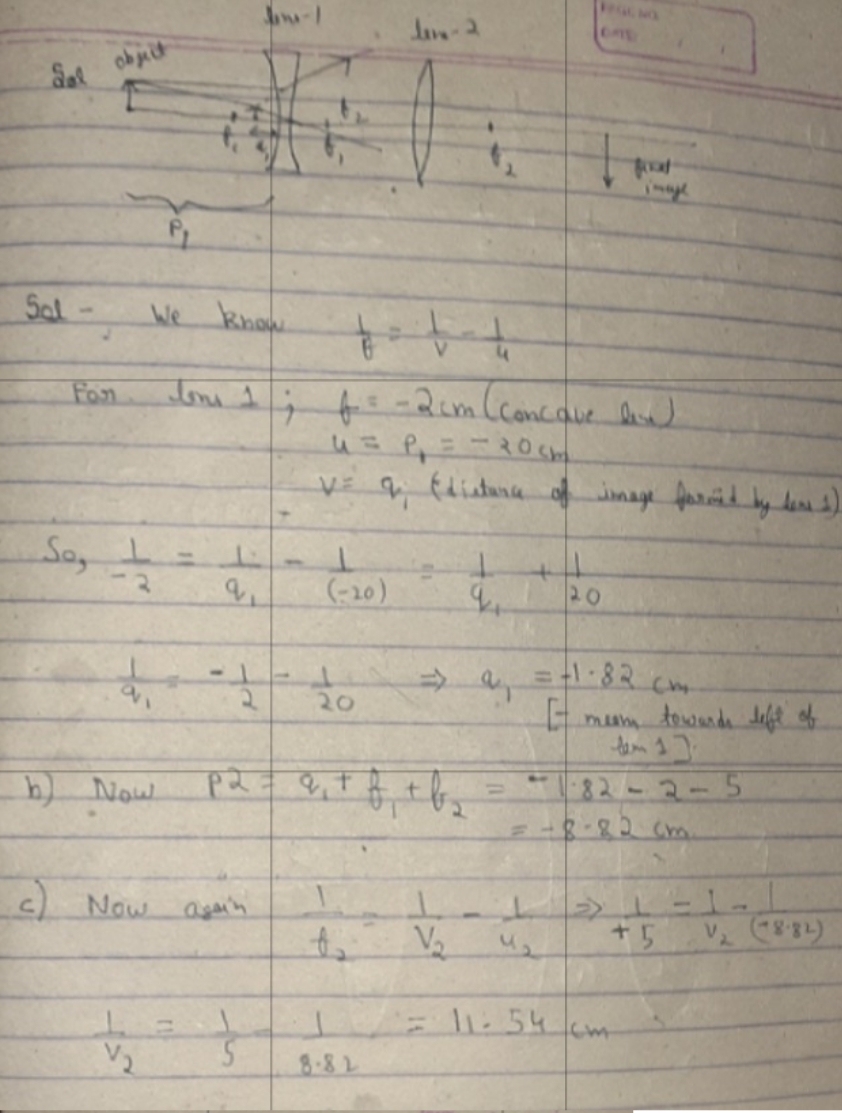 lens-1
lens-2
PAGE NO.
DATE:
Sol object
f₁ q₁ f₂ f₁ f₂
final
image
P₁
Sol - We know 1/f = 1/v - 1/u
For lens 1 ; f = -2cm (concave lens)
u = P₁ = -20cm
v = q₁ (distance of image formed by lens 1)
So, 1/-2 = 1/q₁ - 1/(-20) = 1/q₁ + 1/20
1/q₁ = -1/2 - 1/20 ⇒ q₁ = -1.82 cm
[- mean towards left of
lens 1]
b) Now P2 = q₁ + f₁ + f₂ = -1.82 - 2 - 5
= -8.82 cm
c) Now again 1/f₂ = 1/V₂ - 1/u₂ ⇒ 1/+5 = 1/V₂ - 1/(-8.82)
1/V₂ = 1/5 - 1/8.82 = 11.54 cm